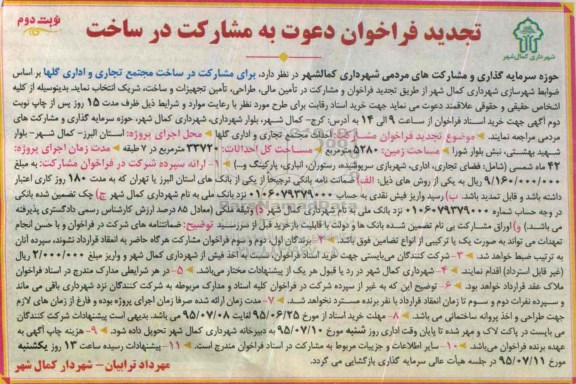 نوبت دوم
تجدید فراخوان دعوت به مشارکت در ساخت
شهرداری کمال‌شهر
حوزه سرمایه گذاری و مشارکت های مردمی شهرداری کمالشهر در نظر دارد، برای مشارکت در ساخت مجتمع تجاری و اداری گلها بر اساس
ضوابط شهرسازی شهرداری کمال شهر از طریق تجدید فراخوان و مشارکت در تأمین مالی، طراحی، تأمین تجهیزات و ساخت، شریک انتخاب نماید. بدینوسیله از کلیه
اشخاص حقیقی و حقوقی علاقمند دعوت می نماید جهت خرید اسناد رقابت برای طرح مورد نظر با رعایت موارد و شرایط ذیل ظرف مدت ۱۵ روز پس از چاپ نوبت
دوم آگهی جهت خرید اسناد فراخوان از ساعت ۹ الی ۱۴ به آدرس: کرج- کمال شهر، بلوار شهرداری، شهرداری کمال شهر، حوزه سرمایه گذاری و مشارکت های
مردمی مراجعه نمایند. موضوع تجدید فراخوان مشارکت: احداث مجتمع تجاری و اداری گلها محل اجرای پروژه: استان البرز- کمال شهر- بلوار
شهید بهشتی، نبش بلوار شورا مساحت زمین: ۵۲۸۰ مترمربع مساحت کل احداثات: ۳۳۷۲۰ مترمربع در ۷ طبقه مدت زمان اجرای پروژه:
۴۲ ماه شمسی (شامل: فضای تجاری، اداری، شهربازی سرپوشیده، رستوران، انباری، پارکینگ و...) ۱- ارائه سپرده شرکت در فراخوان مشارکت: به مبلغ
۹/۱۶۰/۰۰۰/۰۰۰ ریال به یکی از روش های ذیل: الف) ضمانت نامه بانکی ترجیحاً از یکی از بانک های استان البرز یا تهران که به مدت ۱۸۰ روز کاری اعتبار
داشته و قابل تمدید باشد. ب) رسید واریز فیش نقدی به حساب ۰۱۰۶۰۷۹۳۷۹۰۰۰ نزد بانک ملی به نام شهرداری کمال شهر ج) چک تضمین شده بانکی
در وجه حساب شماره ۰۱۰۶۰۷۹۳۷۹۰۰۰ نزد بانک ملی به نام شهرداری کمال شهر د) وثیقه ملکی (معادل ۸۵ درصد ارزش کارشناس رسمی دادگستری پذیرفته
می باشند.) و) اوراق مشارکت بی نام تضمین شده بانک ها و دولت با قابلیت بازخرید قبل از سررسید توضیح: ضمانتنامه های شرکت در فراخوان و یا حسن انجام
تعهدات می تواند به صورت یک یا ترکیبی از انواع تضامین فوق باشد. ۲- برندگان اول، دوم و سوم فراخوان مشارکت هرگاه حاضر به انعقاد قرارداد نشوند، سپرده آنان
به ترتیب ضبط خواهد شد. ۳- شرکت کنندگان می‌بایستی جهت خرید اسناد فراخوان نسبت به اخذ فیش از شهرداری کمال شهر و واریز مبلغ ۲/۰۰۰/۰۰۰ ریال
(غیر قابل استرداد) اقدام نمایند. ۴- شهرداری کمال شهر در رد یا قبول هر یک از پیشنهادات مختار می‌باشد. ۵- در هر شرایطی مدارک مندرج در اسناد فراخوان
ملاک عقد قرارداد خواهد بود. ۶- توضیح این که به غیر از سپرده شرکت در فراخوان کلیه اسناد و مدارک مربوطه به شرکت کنندگان نزد شهرداری باقی می ماند
و سپرده نفرات دوم و سوم تا زمان انعقاد قرارداد با نفر برنده مسترد نخواهد شد. ۷- مدت زمان ارائه شده صرفا زمان اجرای پروژه بوده و فارغ از زمان های لازم
جهت طراحی و اخذ پروانه ساختمانی می باشد. ۸- مهلت خرید اسناد از مورخ ۹۵/۰۶/۲۵ لغایت ۹۵/۰۷/۰۸ می باشد. بدیهی است پیشنهادات شرکت کنندگان
می بایست در پاکت لاک و مهر شده تا پایان وقت اداری روز شنبه مورخ ۹۵/۰۷/۱۰ به دبیرخانه شهرداری کمال شهر تحویل داده شود. ۹- هزینه چاپ آگهی به
عهده برنده فراخوان می‌باشد. ۱۰- سایر اطلاعات و جزییات مربوط به مشارکت در اسناد فراخوان مندرج است. ۱۱- پیشنهادات رسیده ساعت ۱۳ روز یکشنبه
مورخ ۹۵/۰۷/۱۱ در جلسه هیأت عالی سرمایه گذاری بازگشایی می گردد.
مهرداد ترابیان- شهردار کمال شهر